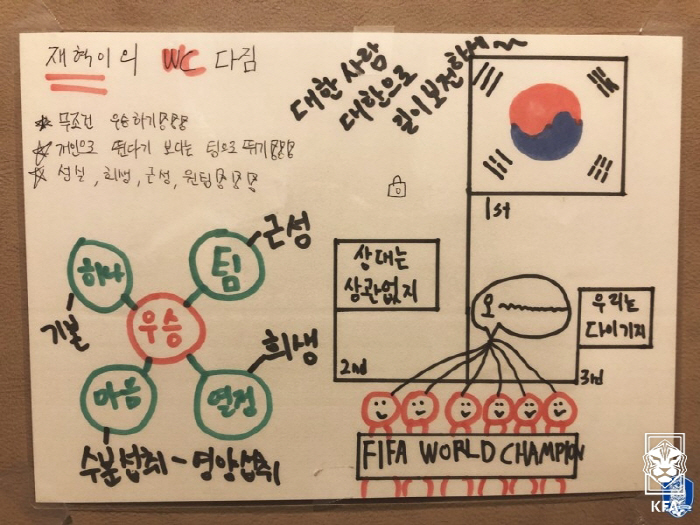 재혁이의 WC 다짐
★ 무조건 우승하기!!!
★ 개인으로 뛴다기 보다는 팀으로 뛰기!!!
★ 성실, 희생, 근성, 원팀!!!!
대한 사람
대한으로
길이 보전하세~~
1st
상대는
상관없지
2nd
오~
우리는
다이기지
3rd
FIFA WORLD CHAMPION
하나
팀
근성
기본
우승
희생
마음
열정
수분섭취 - 영양섭취
KFA